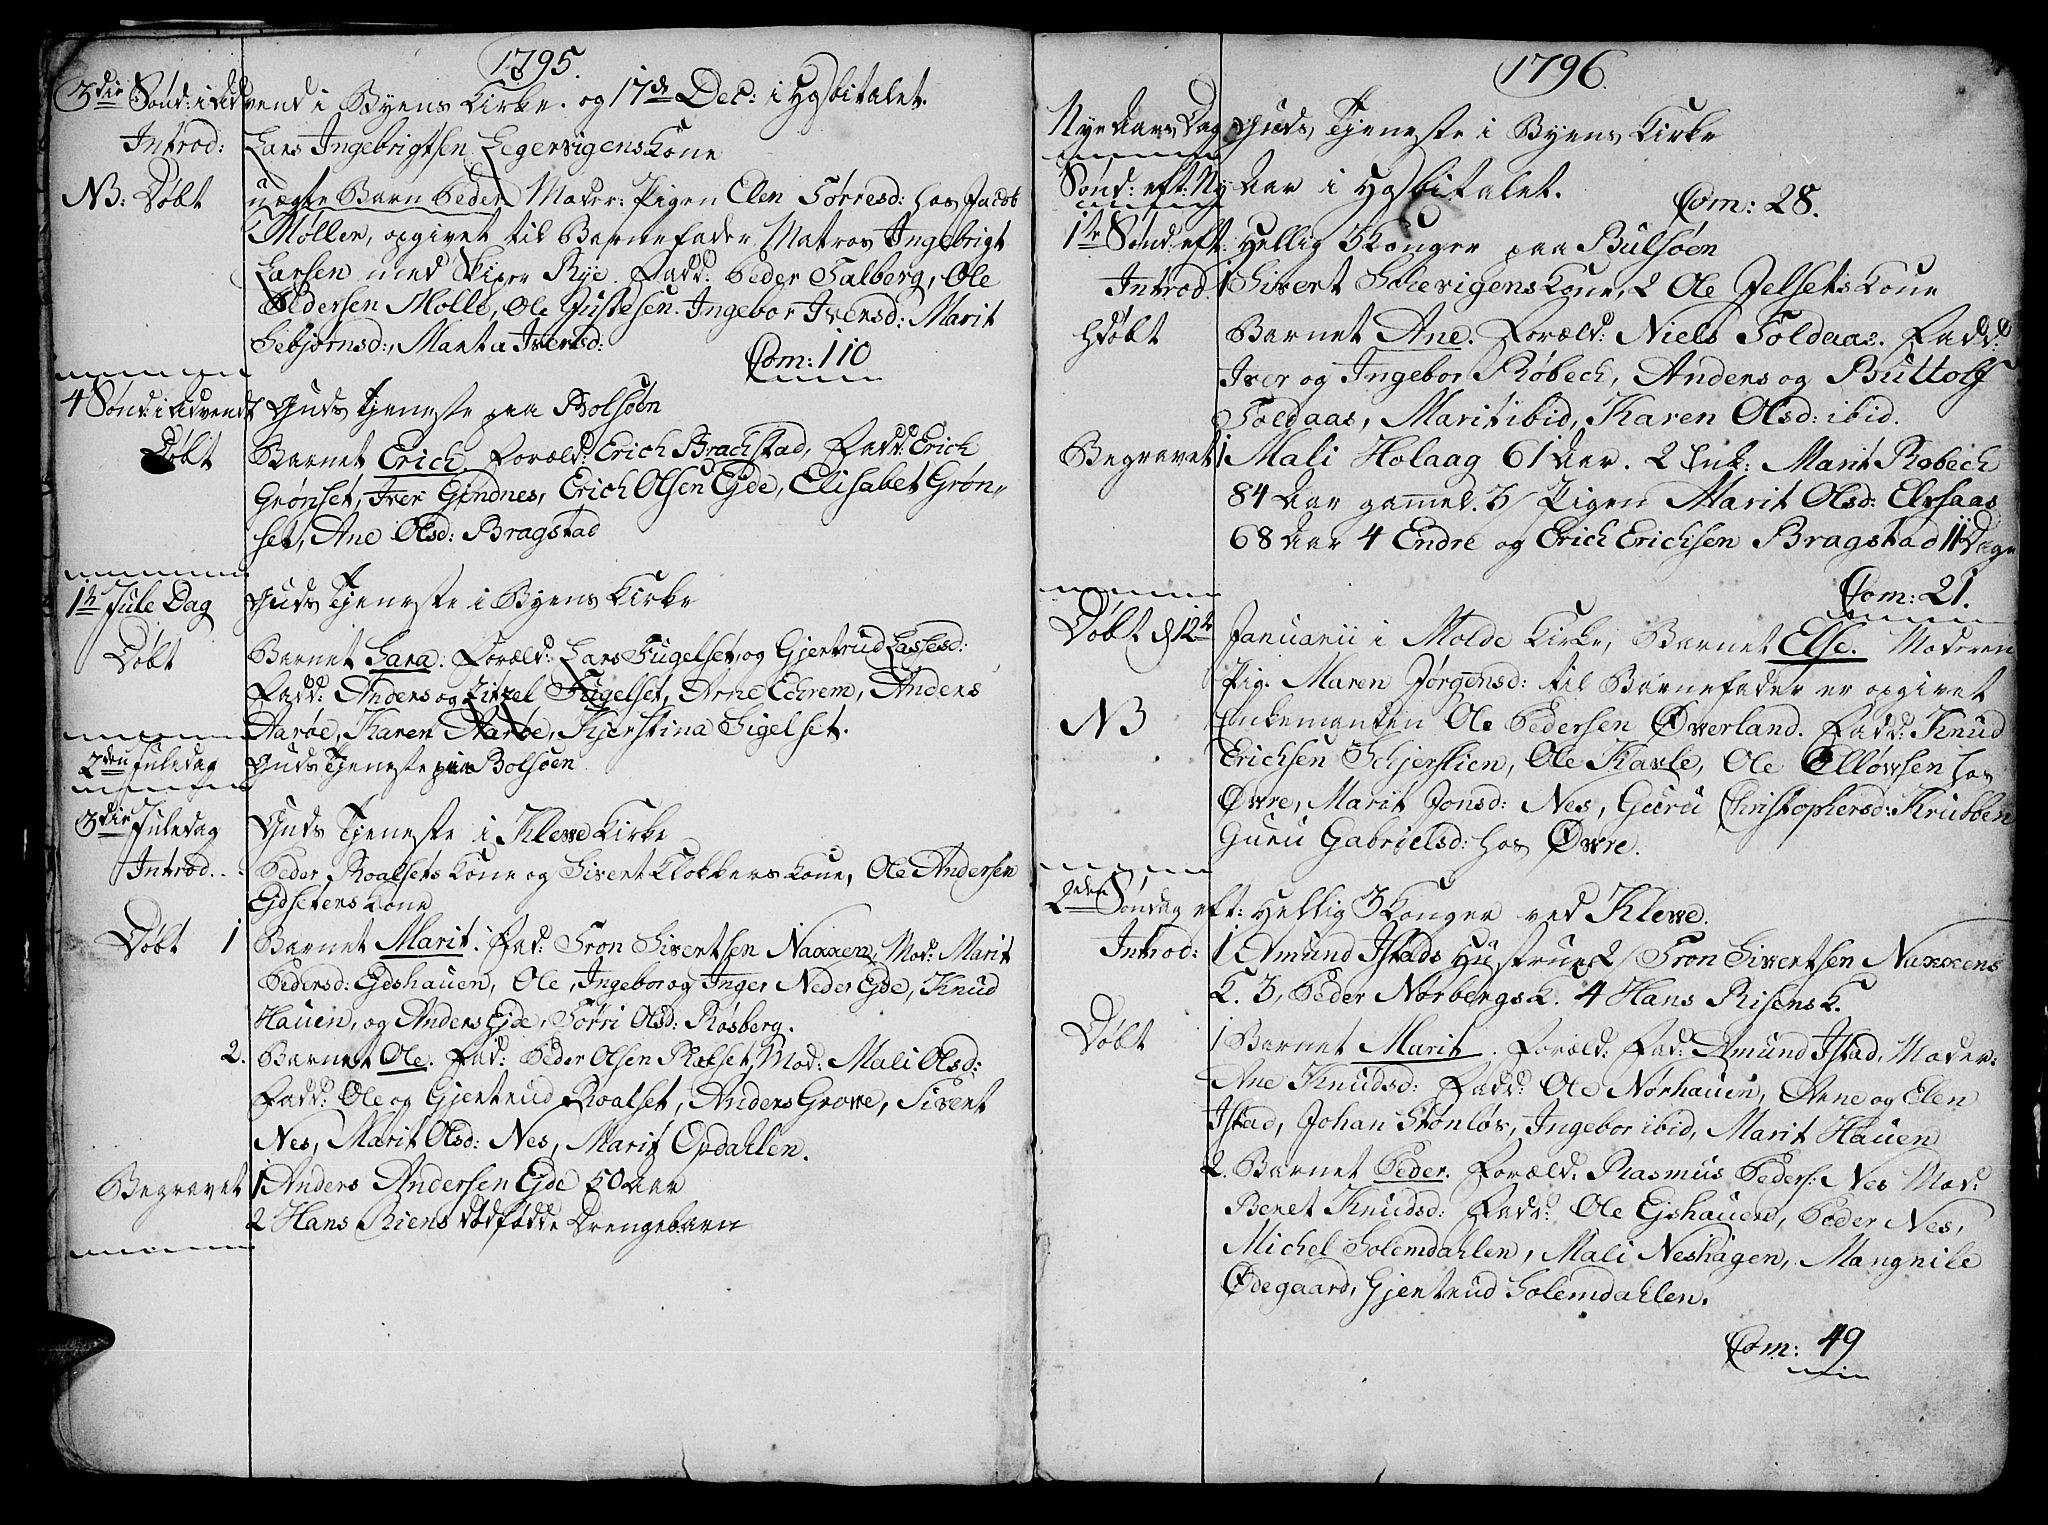 1795.
3die Sønd: i Advend i Byens Kirke. og 17de Dec: i Hosbitalet.
Introd: Lars Ingebrigtsen Legervigens Kone
NB: Døbt uægte Barn Peder Moder: Pigen Elen Torresd: hos Jacob
Møller, opgivet til Barnefader Matros Ingebrigt
Larsen med Skiper Rye. Fadd: Peder Talberg, Ole
Pedersen Molde, Ole Justesen. Ingebor Iversd: Marit
Sebjørnsd:, Marta Iversd:
Com: 110
4 Sønd: i Advendt Guds Tjeneste paa Bolsøen
Døbt Barnet Erich. Foræld: Erich Brachstad, Fadd: Erich
Grønset, Iver Gjendnes, Erich Olsen Ejde, Elisabet Grøn-
set, Ane Olsd: Bragstad
1te Jule Dag Guds Tjeneste i Byens Kirke
Døbt Barnet Sara. Foræld: Lars Fugelset, og Gjertrud Lassesd:
Fadd: Anders og Zitzel Fugelset, Arne Echrem, Anders
Aarøe, Karen Aarøe, Kjerstina Sigelset.
2den Juledag Guds Tjeneste paa Bolsøen
3die Juledag Guds Tjeneste i Klewe Kirke
Introd.. Peder Roalsets Kone og Sivert Klokkers Kone, Ole Andersen
Ejdsetens Kone
Døbt 1 Barnet Marit. Fad: Tron Sivertsen Naxxen, Mod: Marit
Pedersd: Ejdshauen, Ole, Ingebor og Inger Neder Ejde, Knud
Hauen, og Anders Ejde, Torri Olsd: Røsberg.
2. Barnet Ole. Fad: Peder Olsen Roalset, Mod: Mali Olsd:
Fadd: Ole og Gjertrud Roalset, Anders Growe, Sivert
Nes, Marit Olsd: Nes, Marit Opdahlen.
Begravet 1 Anders Andersen Ejde 50 Aar
2 Hans Riens dødfødde Drengebarn
1796.
Nye Aars Dag Guds Tjeneste i Byens Kirke
Sønd: eft: Ny Aar i Hosbitalet.
Com: 28.
1te Sønd: eft: Hellig 3 Konger paa Bulsøen
Introd. 1 Sivert Solevigens Kone, 2 Ole Jelsets Kone
hdøbt Barnet Ane. Foræld: Niels Toldaas. Fadd:
Iver og Ingebor Røbech, Anders og Buttolf
Toldaas, Marit ibid, Karen Olsd: ibid.
Begravet 1 Mali Holaag 61 Aar. 2 Enk: Marit Røbech
84 Aar gammel. 3/ Pigen Marit Olsd: Elvsaas
68 Aar 4 Endre og Erich Erichsen Bragstad 11 Dage
Com: 21.
Døbt d 12te Januarii i Molde Kirke, Barnet Else. Moderen
Pig. Maren Jørgensd: til Barnefader er opgivet
NB Enkemanden Ole Pedersen Øverland. Fadd: Knud
Erichsen Schjerslien, Ole Kavle, Ole Elløvsen hos
Øvre, Marit Jonsd: Nes, Guru Christophersd: Krubøen
Guru Gabrielsd: hos Øvre.
2den Søndag eft: Hellig 3 Konger ved Klewe.
Introd: 1 Amund Istads Hustrue, 2/ Tron Sivertsen Naxxens
K. 3, Peder Norbergs K. 4 Hans Risens K.
Døbt 1 Barnet Marit. Foræld: Fad: Amund Istad, Moder:
Ane Knudsd: Fadd: Ole Nørhauen, Arne og Elen
Istad, Johan Stønløs, Ingebor ibid, Marit Hauen
2. Barnet Peder. Foræld. Rasmus Peders: Nes Mod:
Beret Knudsd: Fadd: Ole Ejshauen, Peder Nes,
Michel Solemdahlen, Mali Neshagen, Mangnile
Ødegaard, Gjertrud Solemdahlen.
Com: 49